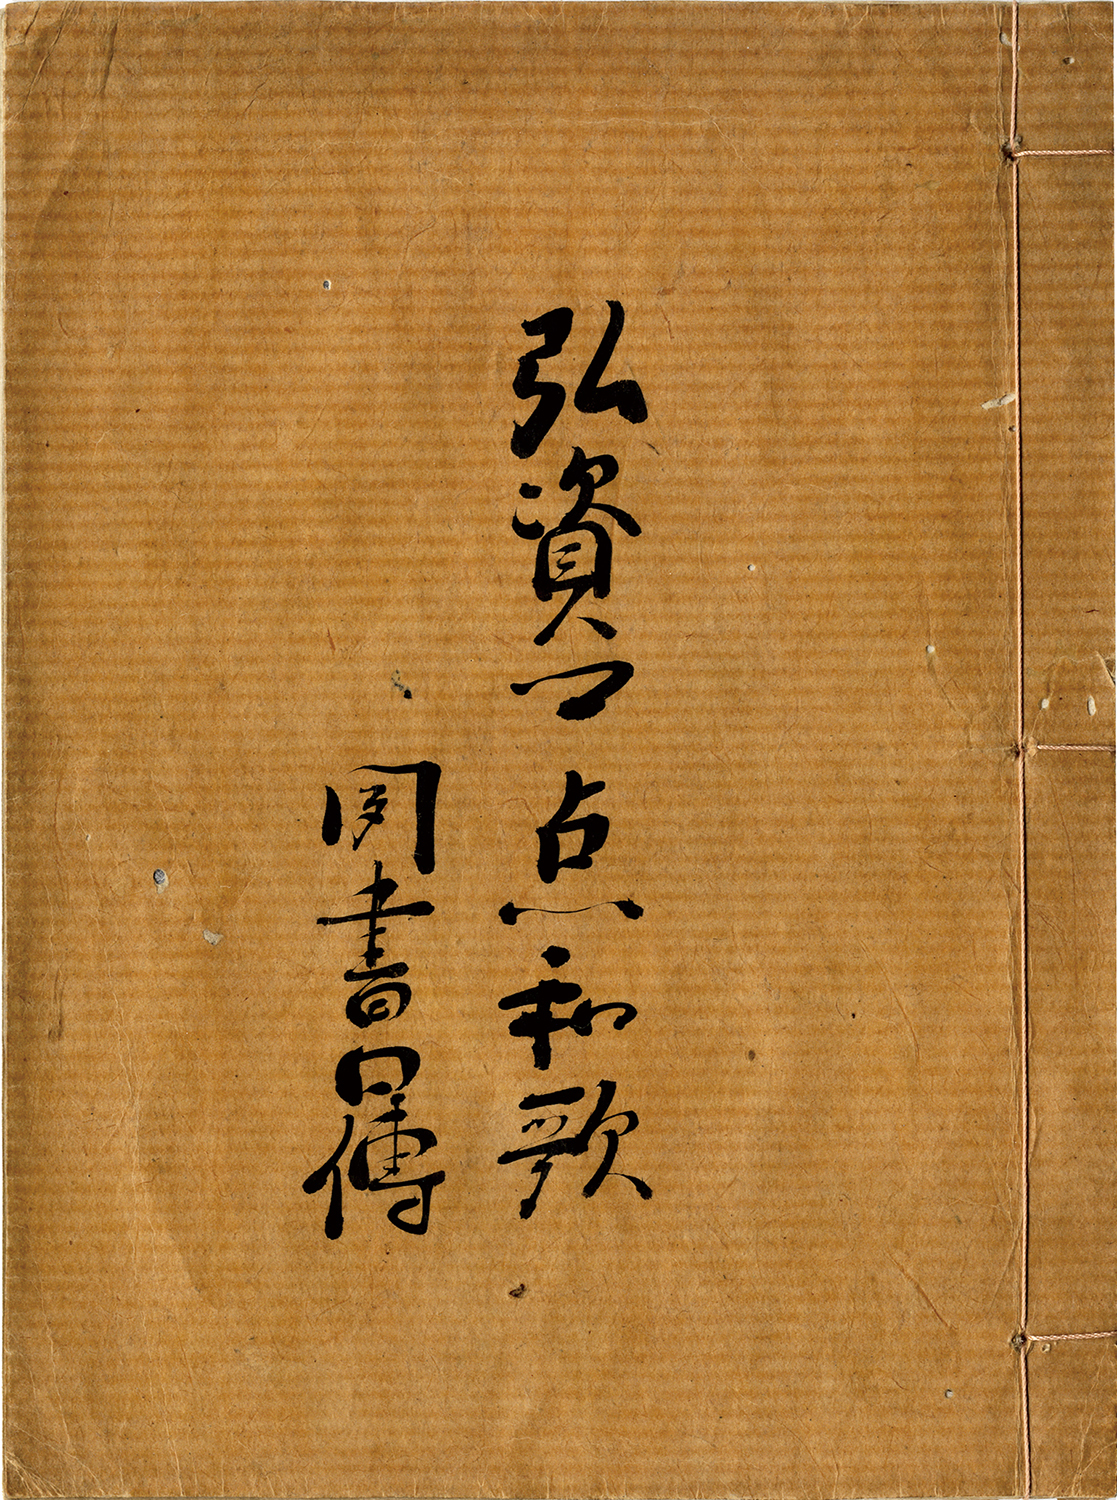 弘資卿点和歌
聞書口傳